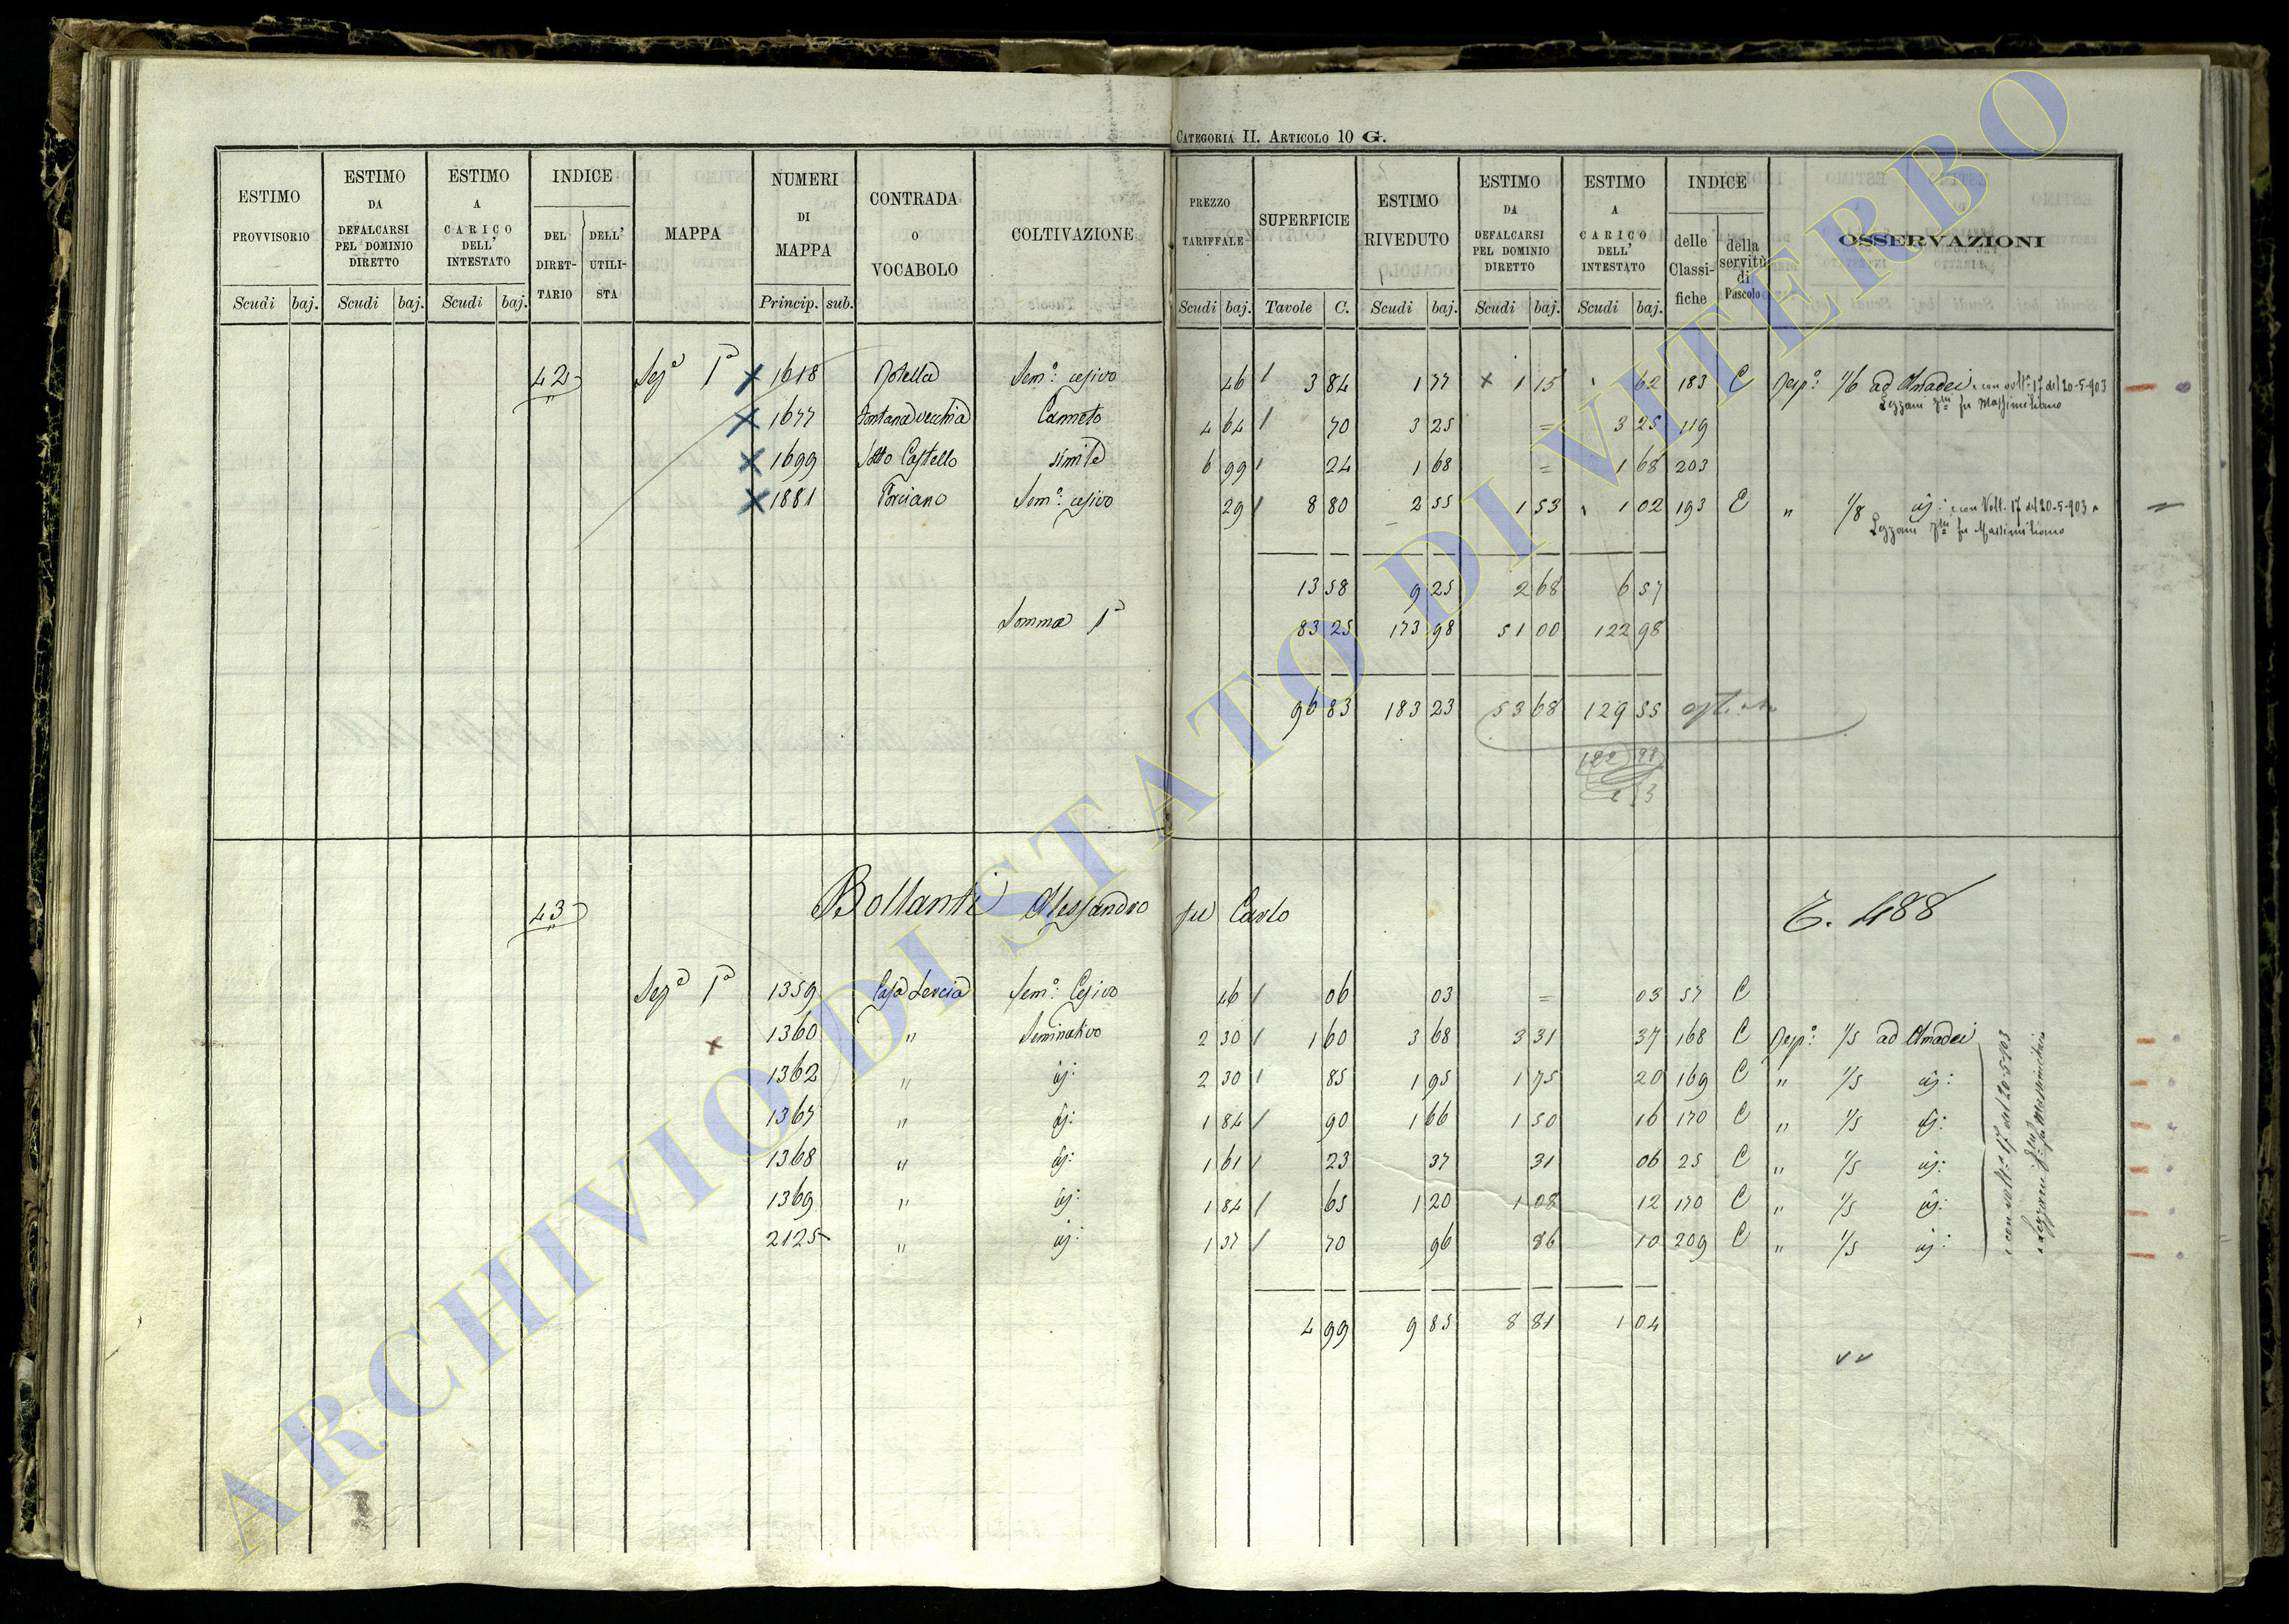 CATEGORIA II. ARTICOLO 10 G.
ESTIMO PROVVISORIO
ESTIMO DA DEFALCARSI PEL DOMINIO DIRETTO
ESTIMO A CARICO DELL' INTESTATO
INDICE
DEL DIRETTARIO
DELL' UTILISTA
MAPPA
NUMERI DI MAPPA
CONTRADA O VOCABOLO
COLTIVAZIONE
PREZZO TARIFFALE
SUPERFICIE
ESTIMO RIVEDUTO
ESTIMO DA DEFALCARSI PEL DOMINIO DIRETTO
ESTIMO A CARICO DELL' INTESTATO
INDICE
delle Classifiche
della servitù di Pascolo
OSSERVAZIONI
Scudi baj. Scudi baj. Scudi baj. Princip. sub. Scudi baj. Tavole C. Scudi baj. Scudi baj. Scudi baj.
42 Sezᵉ 1ª x 1618 Sem°: cesivo 46 / 3 84 1 77 x 1 15 62 183 C Resp°: 1/6 ad Amadei e con volt. 17 del 20-5-903
Lezzani fu Massimiliano
x 1677 Fontana vecchia Canneto 4 64 / 70 3 25 = 3 25 119
x 1699 Sotto Castello simile 6 99 / 24 1 68 = 1 68 203
x 1881 Porciano Sem°: cesivo 29 / 8 80 2 55 1 53 1 02 193 C " 1/8 e con Volt. 17 del 20-5-903 a
Lezzani fu Massimiliano
13 58 9 25 2 68 6 57
Somma 1ª 83 25 173 98 51 00 122 98
96 83 183 23 53 68 129 55
122 98
43 Bollanti Alessandro fu Carlo E. 488
Sezᵉ 1ª 1359 Casa Lercia Sem°: Cesivo 46 / 06 03 = 03 57 C
x 1360 " Seminativo 2 30 / 1 60 3 68 3 31 37 168 C Resp°: 1/5 ad Amadei
1362 " id: 2 30 / 85 1 95 1 75 20 169 C " 1/5 id:
1367 " id: 1 84 / 90 1 66 1 50 16 170 C " 1/5 id:
1368 " id: 1 61 / 23 37 31 06 25 C " 1/5 id:
1369 " id: 1 84 / 65 1 20 1 08 12 170 C " 1/5 id:
2125 " id: 1 37 / 70 96 86 10 209 C " 1/5 id:
e con volt: 17 del 20-5-903
a Lezzani fu Massimiliano
4 99 9 85 8 81 1 04
ARCHIVIO DI STATO DI VITERBO